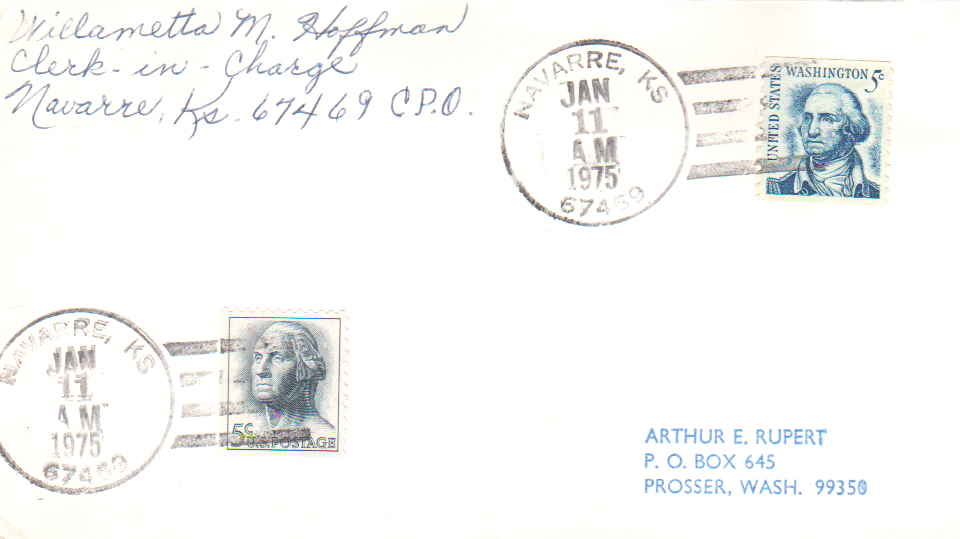 Willametta M. Hoffman
Clerk-in-Charge
Navarre, Ks. 67469 C.P.O.
NAVARRE, KS
JAN
11
A.M
1975
67469
UNITED STATES
WASHINGTON 5c
NAVARRE, KS
JAN
11
A M
1975
67469
5c
U.S. POSTAGE
ARTHUR E. RUPERT
P. O. BOX 645
PROSSER, WASH. 99350